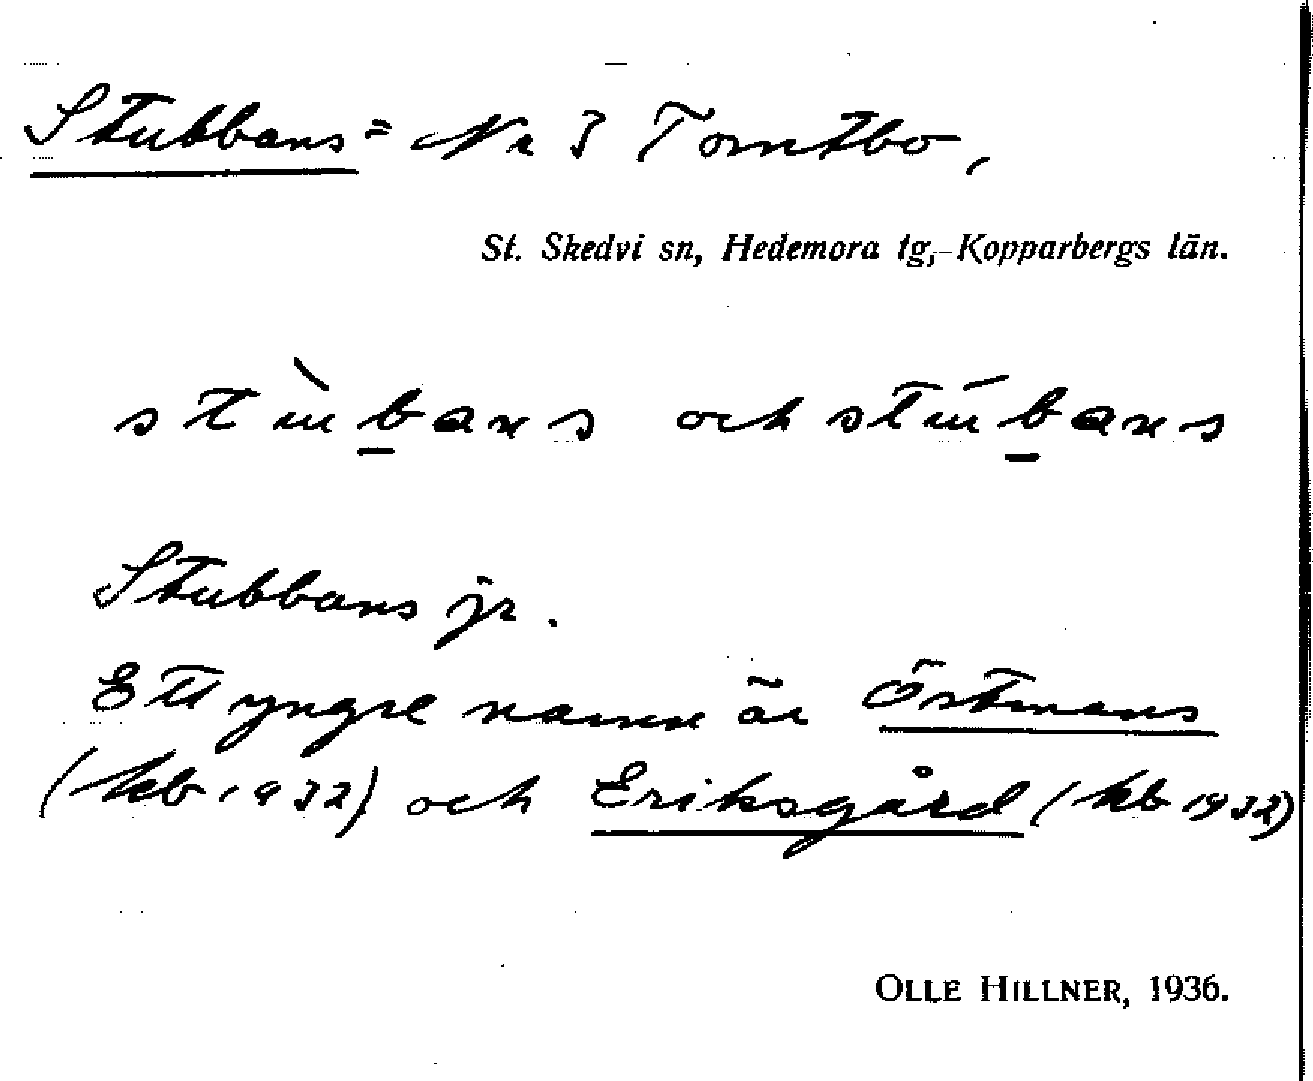 Stubbans = Nr 3 Tomtbo,
St. Skedvi sn, Hedemora tg, Kopparbergs län.
stùb̲ans och stúb̲ans
Stubbans jr.
Ett yngre namn är Östmans
(kb 1932) och Eriksgård (kb 1932)
OLLE HILLNER, 1936.